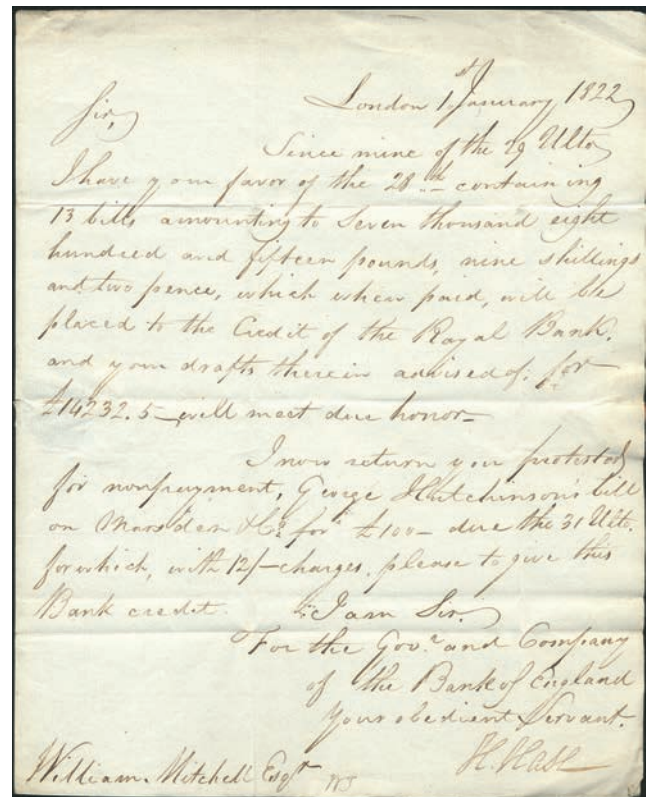 London 1st January 1822
Sir,
Since mine of the 29 Ulto
I have your favor of the 28th containing
13 bills amounting to Seven thousand eight
hundred and fifteen pounds, nine shillings
and two pence, which when paid, will be
placed to the Credit of the Royal Bank.
and your drafts therein advised of, for
£14232.5– will meet due honor–
I now return you protested
for nonpayment, George Hutchinson's bill
on Marsden & Co. for £100– due the 31 Ulto.
for which, with 12/– charges, please to give this
Bank credit. I am Sir.
For the Govr. and Company
of the Bank of England
Your obedient Servant.
H. Hase
William Mitchell Esqr